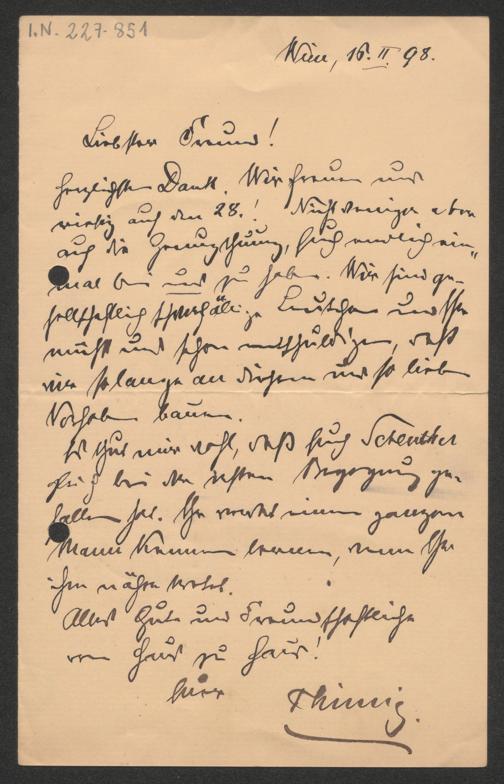 I.N. 227.851
Wien, 16. II. 98.
Liebster Freund!
Herzlichsten Dank. Wir freuen uns
riesig auf den 28.! Nicht weniger aber
auf die Genugthuung, Euch endlich ein-
mal bei uns zu haben. Wir sind ge-
sellschaftlich schwerfällige Leutchen und Ihr
müßt uns schon entschuldigen, daß
wir so lange an diesem uns so lieben
Vorhaben bauen.
Es thut mir wohl, daß Euch Schlenther
bei der ersten Begegnung ge-
fallen hat. Ihr werdet einen ganzen
Mann kennen lernen, wenn Ihr
ihm näher tretet.
Alles Gute und Freundschaftliche
von Haus zu Haus!
Euer Thimig.